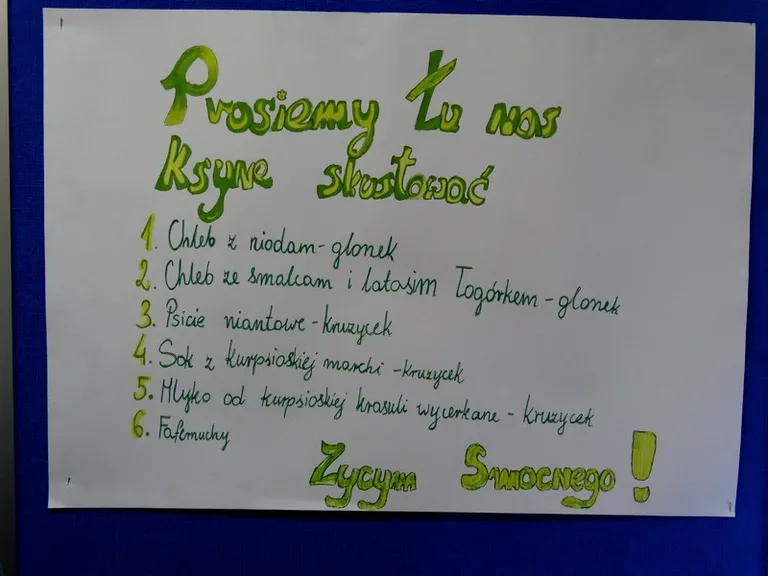 Prosiemy Łu nas
Ksyne skustować
1. Chleb z niodam - glonek
2. Chleb ze smalcam i latosim Łogórkem - glonek
3. Psicie niantowe - kruzycek
4. Sok z kurpsioskiéj marchi - kruzycek
5. Mlyko od kurpsioskiéj krasuli wycerkane - kruzycek
6. Fafernuchy
Zycym Smacnego!